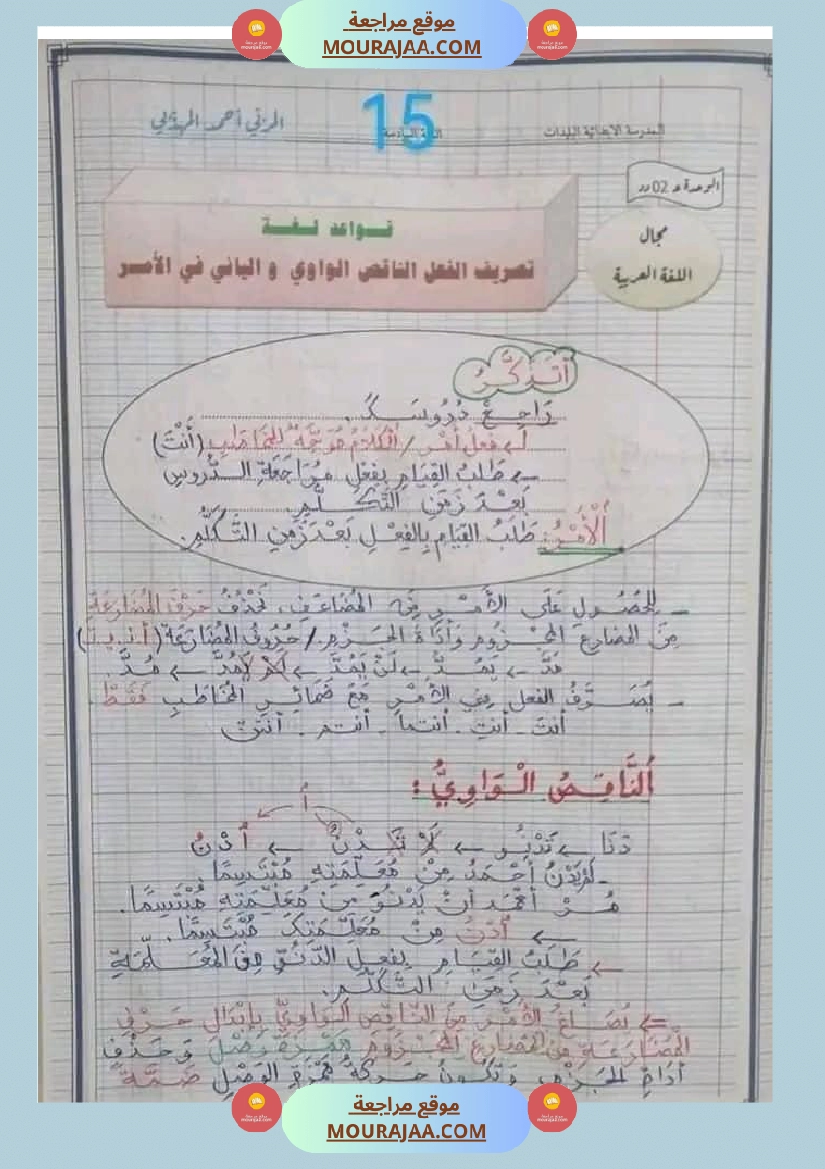 موقع مراجعة
MOURAJAA.COM
المدرسة الابتدائية
15
المربي أحمد
الوحدة عـ 02 دد
مجال
اللغة العربية
قـواعد لـغـة
تصريف الفعل الناقص الواوي و اليائي في الأمـر
أَتَذَكَّرُ
رَاجِعْ دُرُوسَكَ.
فعل أمر / الكلام موجّه للمخاطب (أَنْتَ)
طلب القيام بفعل مراجعة الدّروس
بَعْدَ زَمَنِ التَّكَلُّمِ
اَلْأَمْرُ: طَلَبُ القِيَامِ بِالفِعْلِ بَعْدَ زَمَنِ التَّكَلُّمِ.
- لِلحُصُولِ عَلَى الأَمْرِ مِنَ المُضَاعَفِ، نَحْذِفُ حَرْفَ المُضَارَعَةِ
مِنَ المضارع المجْزُومِ وَأَدَاةَ الجَزْمِ / حُرُوفُ المُضَارَعَة (أ.ن.ي.ت)
مَدَّ ← يَمُدُّ ← لَمْ يَمُدَّ ← ← مُدَّ.
- يُصَرَّفُ الفعل في الأَمْرِ مَعَ ضَمَائِرِ المُخَاطَبِ فَقَطْ
أنتَ - أنتِ - أنتما - أنتم - أنتنّ
اَلنَّاقِصُ الْوَاوِيُّ:
أُ
دَنَا ← تَدْنُو ← لَا تَدْنُ ← اُدْنُ
- لَمْ يَدْنُ أَحْمَدُ مِنْ مُعَلِّمَتِهِ مُبْتَسِمًا.
مُرْ أَحْمَدَ أَنْ يَدْنُوَ مِنْ مُعَلِّمَتِهِ مُبْتَسِمًا.
← اُدْنُ مِنْ مُعَلِّمَتِكَ مُبْتَسِمًا.
← طَلَبُ القِيَامِ بِفِعْلِ الدُّنُوِّ مِنَ المُعَلِّمَةِ
بَعْدَ زَمَنِ التَّكَلُّمِ.
← يُصَاغُ الأَمْرُ مِنَ النَّاقِصِ الوَاوِيِّ بِإِبْدَالِ حَرْفِ
المُضَارَعَةِ مِنَ المُضَارِعِ المَجْزُومِ هَمْزَةَ وَصْلٍ وَحَذْفِ
أَدَاةِ الجَزْمِ وَتَكُونُ حَرَكَةُ هَمْزَةِ الوَصْلِ ضَمَّةً
موقع مراجعة
MOURAJAA.COM